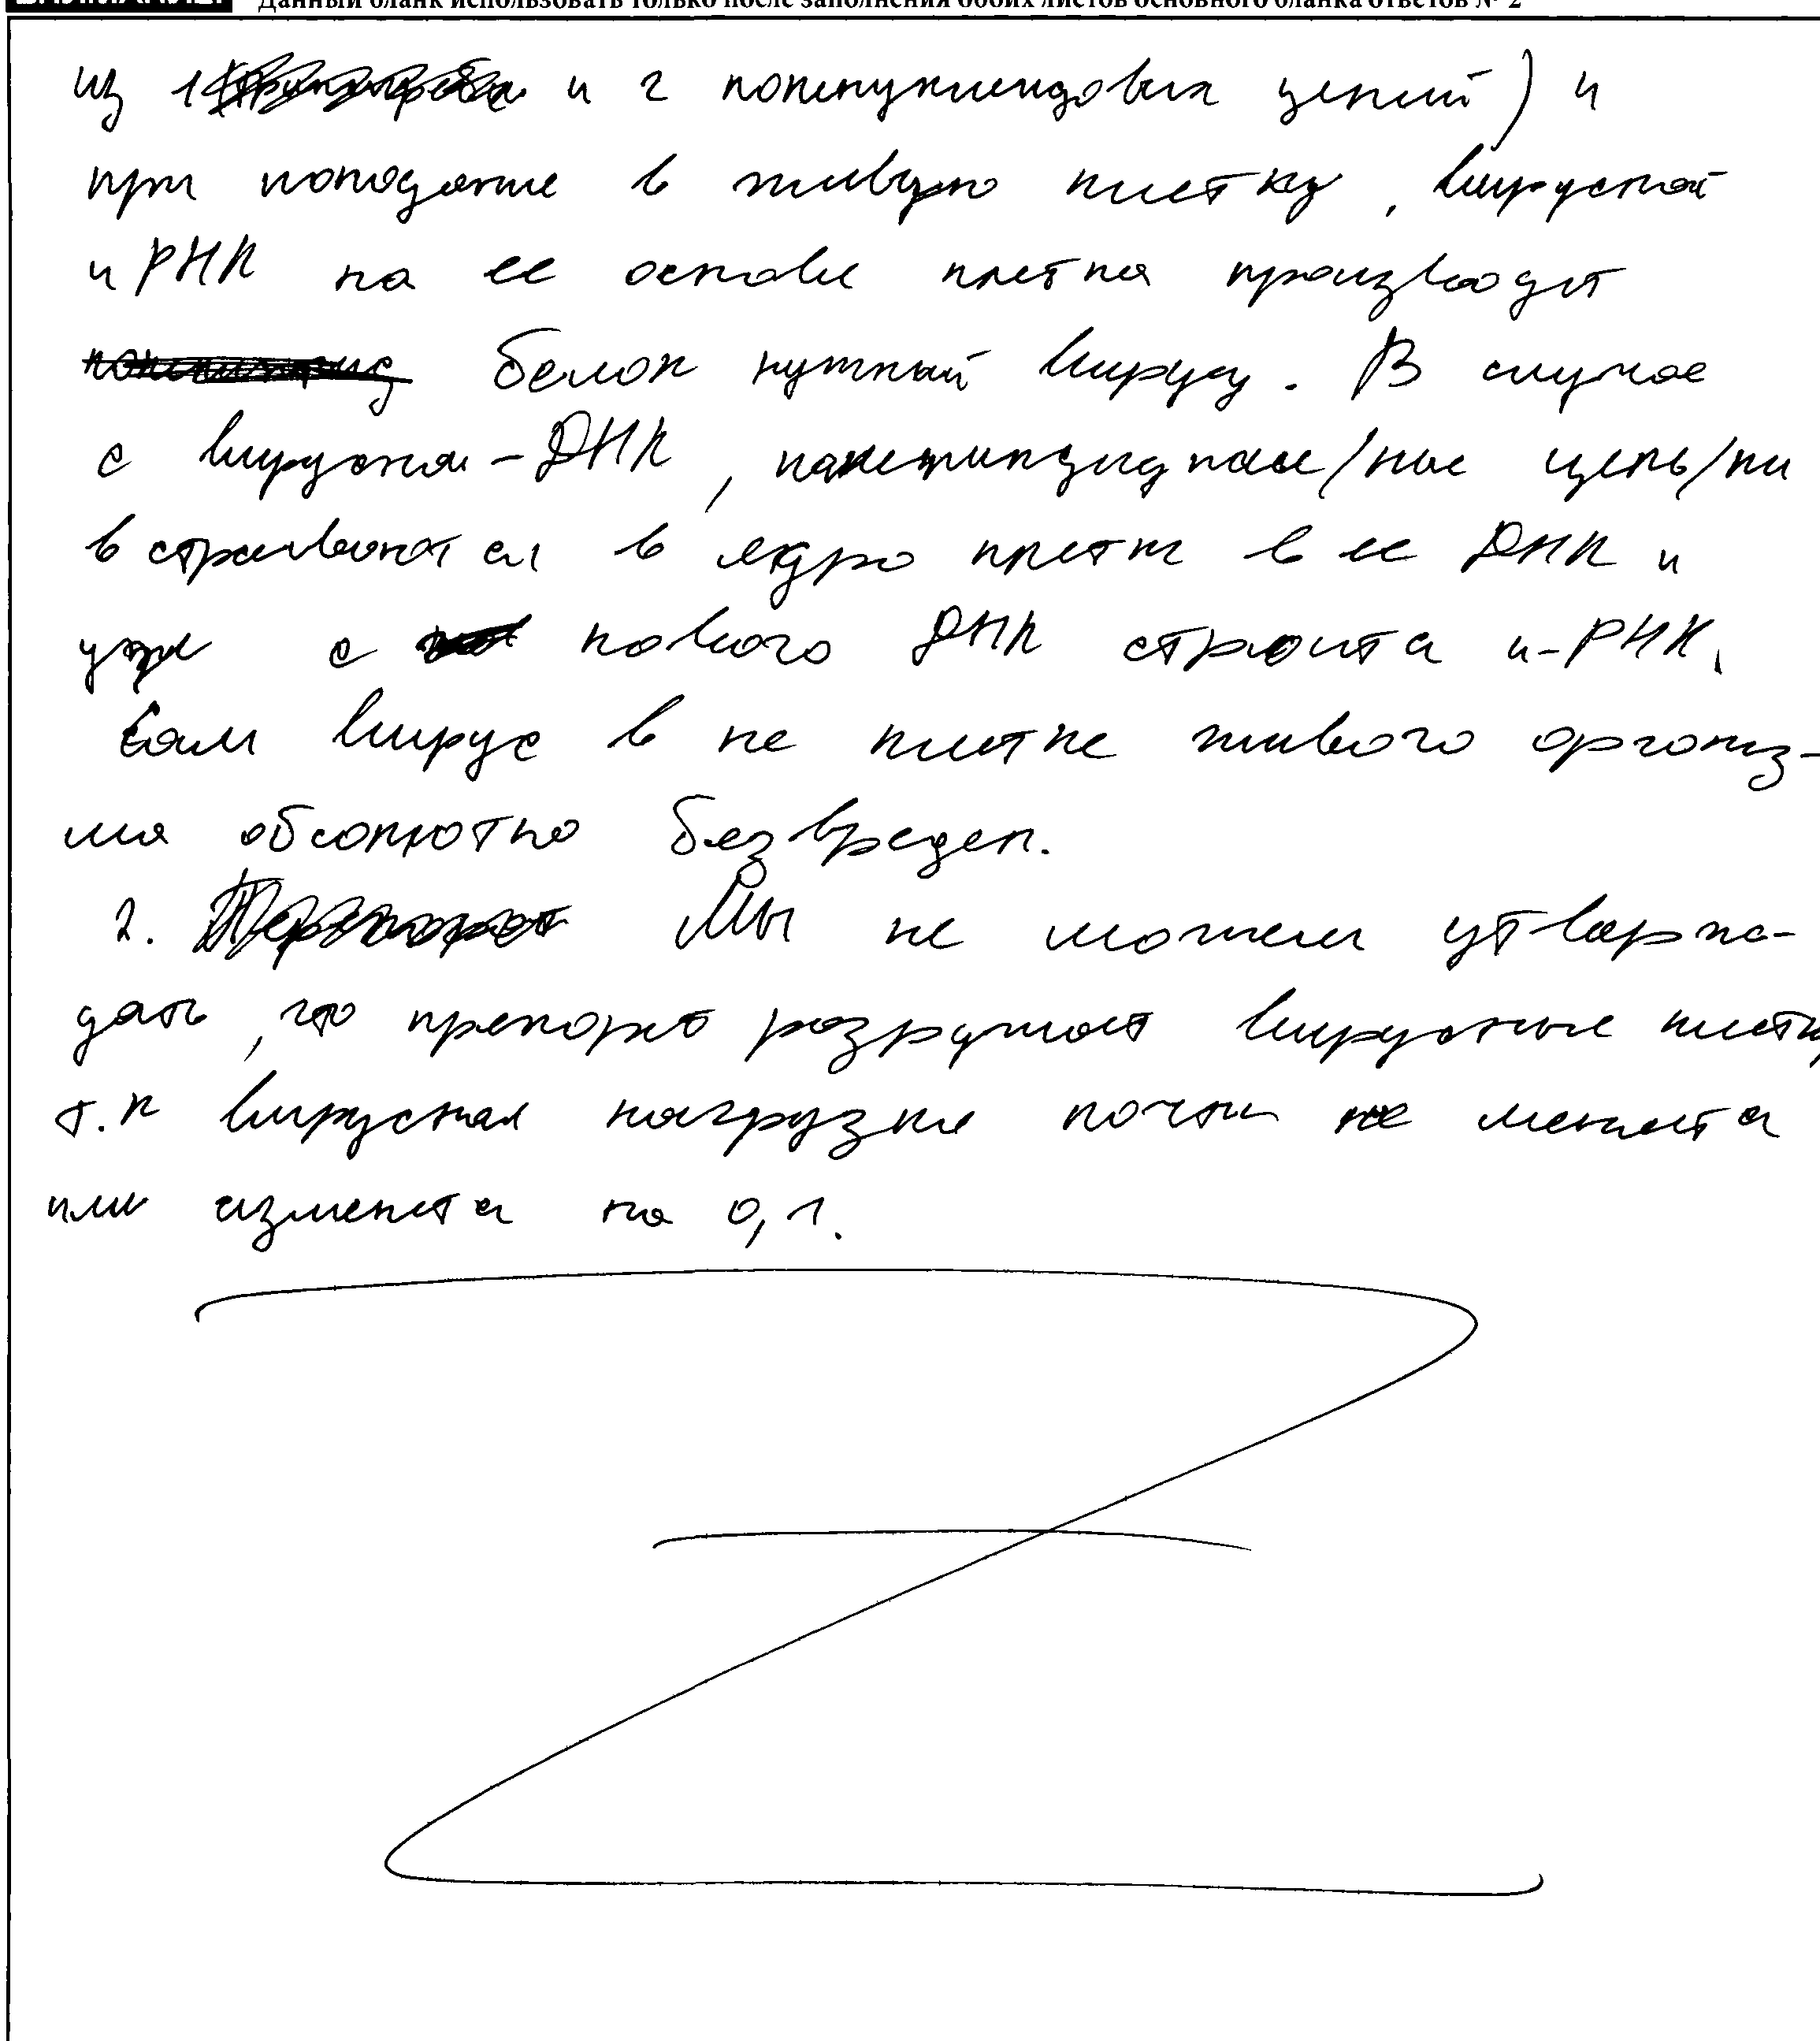 Данный бланк использовать только после заполнения обоих листов основного бланка ответов № 2
из 1 и 2 полинуклеидовых цепий) и
при попадание в живую клетку, вирусной
иРНК на ее основе клетка производит
белок нужный вирусу. В случае
с вирусной-ДНК, цепь/пи
встраиваются в ядро клетки в ее ДНК и
уже с нового ДНК строится и-РНК.
Сам вирус в не клетке живого организ-
ма обсолютно безвреден.
2. Мы не можем утверж-
дать, что препарат разрушает вирусные клетки
т.к вирусная нагрузка почти не меняется
или изменется на 0,1.